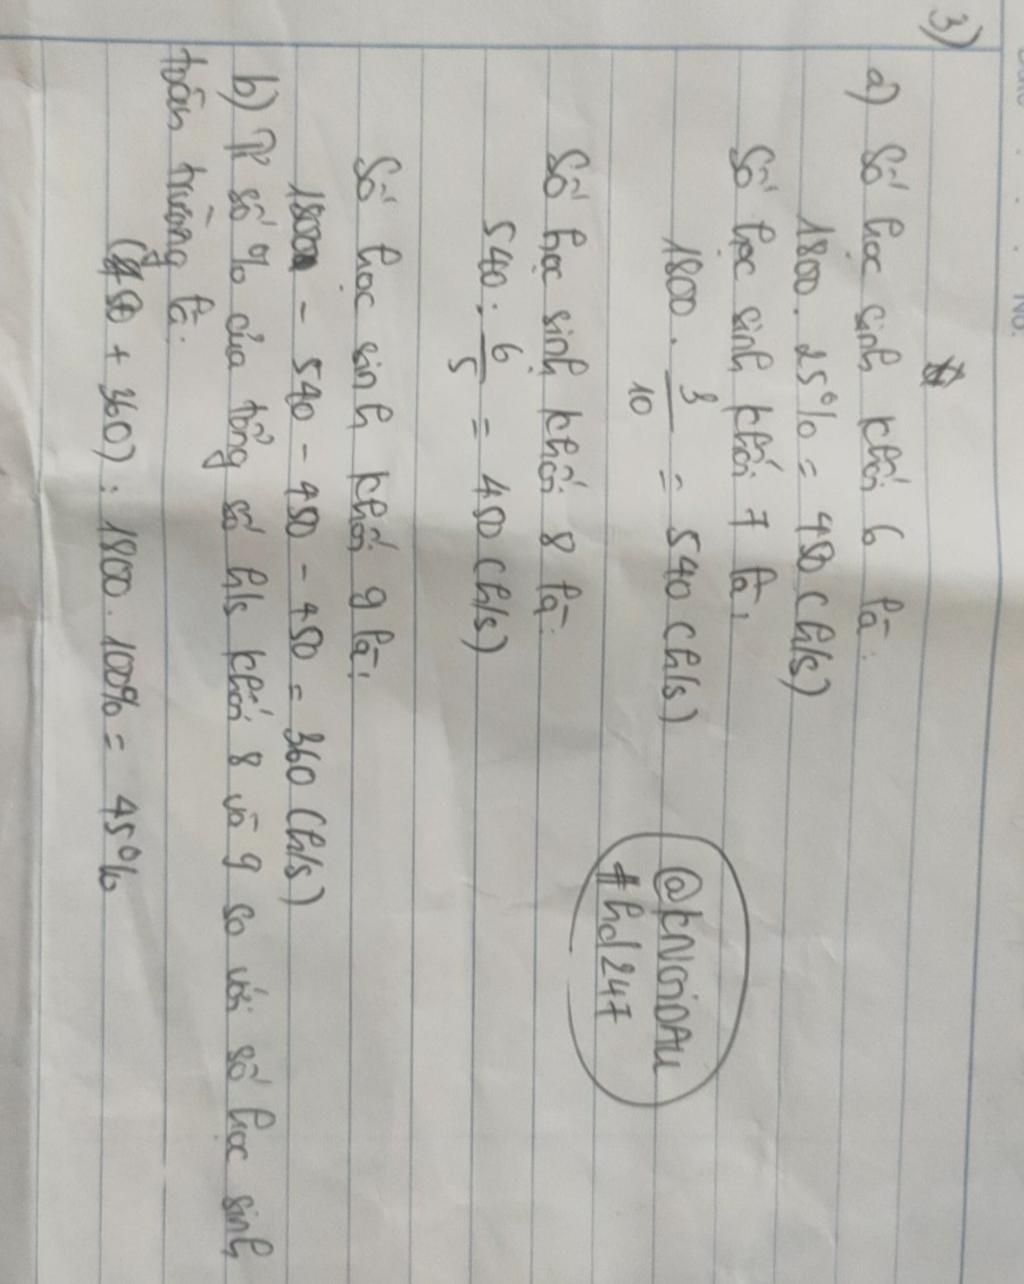 3)
a) Số học sinh khối 6 là:
1800. 25% = 450 (h/s)
Số học sinh khối 7 là:
1800. 3/10 = 540 (h/s)
Số học sinh khối 8 là:
540: 6/5 = 450 (h/s)
Số học sinh khối 9 là:
1800 - 540 - 450 - 450 = 360 (h/s)
b) Tỉ số % của tổng số h/s khối 8 và 9 so với số học sinh
toàn trường là:
(450 + 360): 1800. 100% = 45%
#hd247
No.